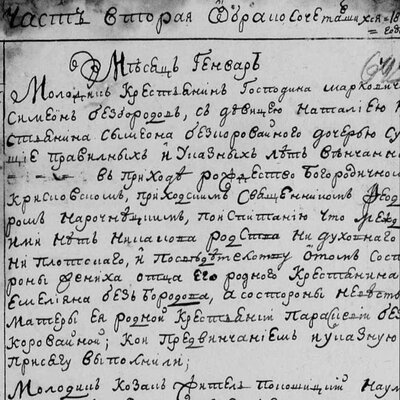 Часть вторая Обракосочетавшихся 18
Мѣсяцъ Генварь
Молодикъ Крестьянинъ Господина Марковича
Симеонъ безбородовъ, съ дѣвицею Наталіею К
стьянина Сѵмеона безкоровайного дочерью су
щіе правильныхъ и указныхъ лѣтъ вѣнчаны
въ приходѣ рождество Богородичном
приходскимъ Священникомъ Ѳеодо
ромъ по испытанію что межд
ими нѣтъ никакова родства ни духовнаго
ни плотскаго, и по сост
роны жениха отца его родного Крестьянина
Емеліяна безъбородова, а состороны невѣсты
матеры ея родной Крестьянки Параскеви без
коровайной; кои предвинчаніемъ и указную
присягу выполнили;
Молодикъ Козакъ Наум